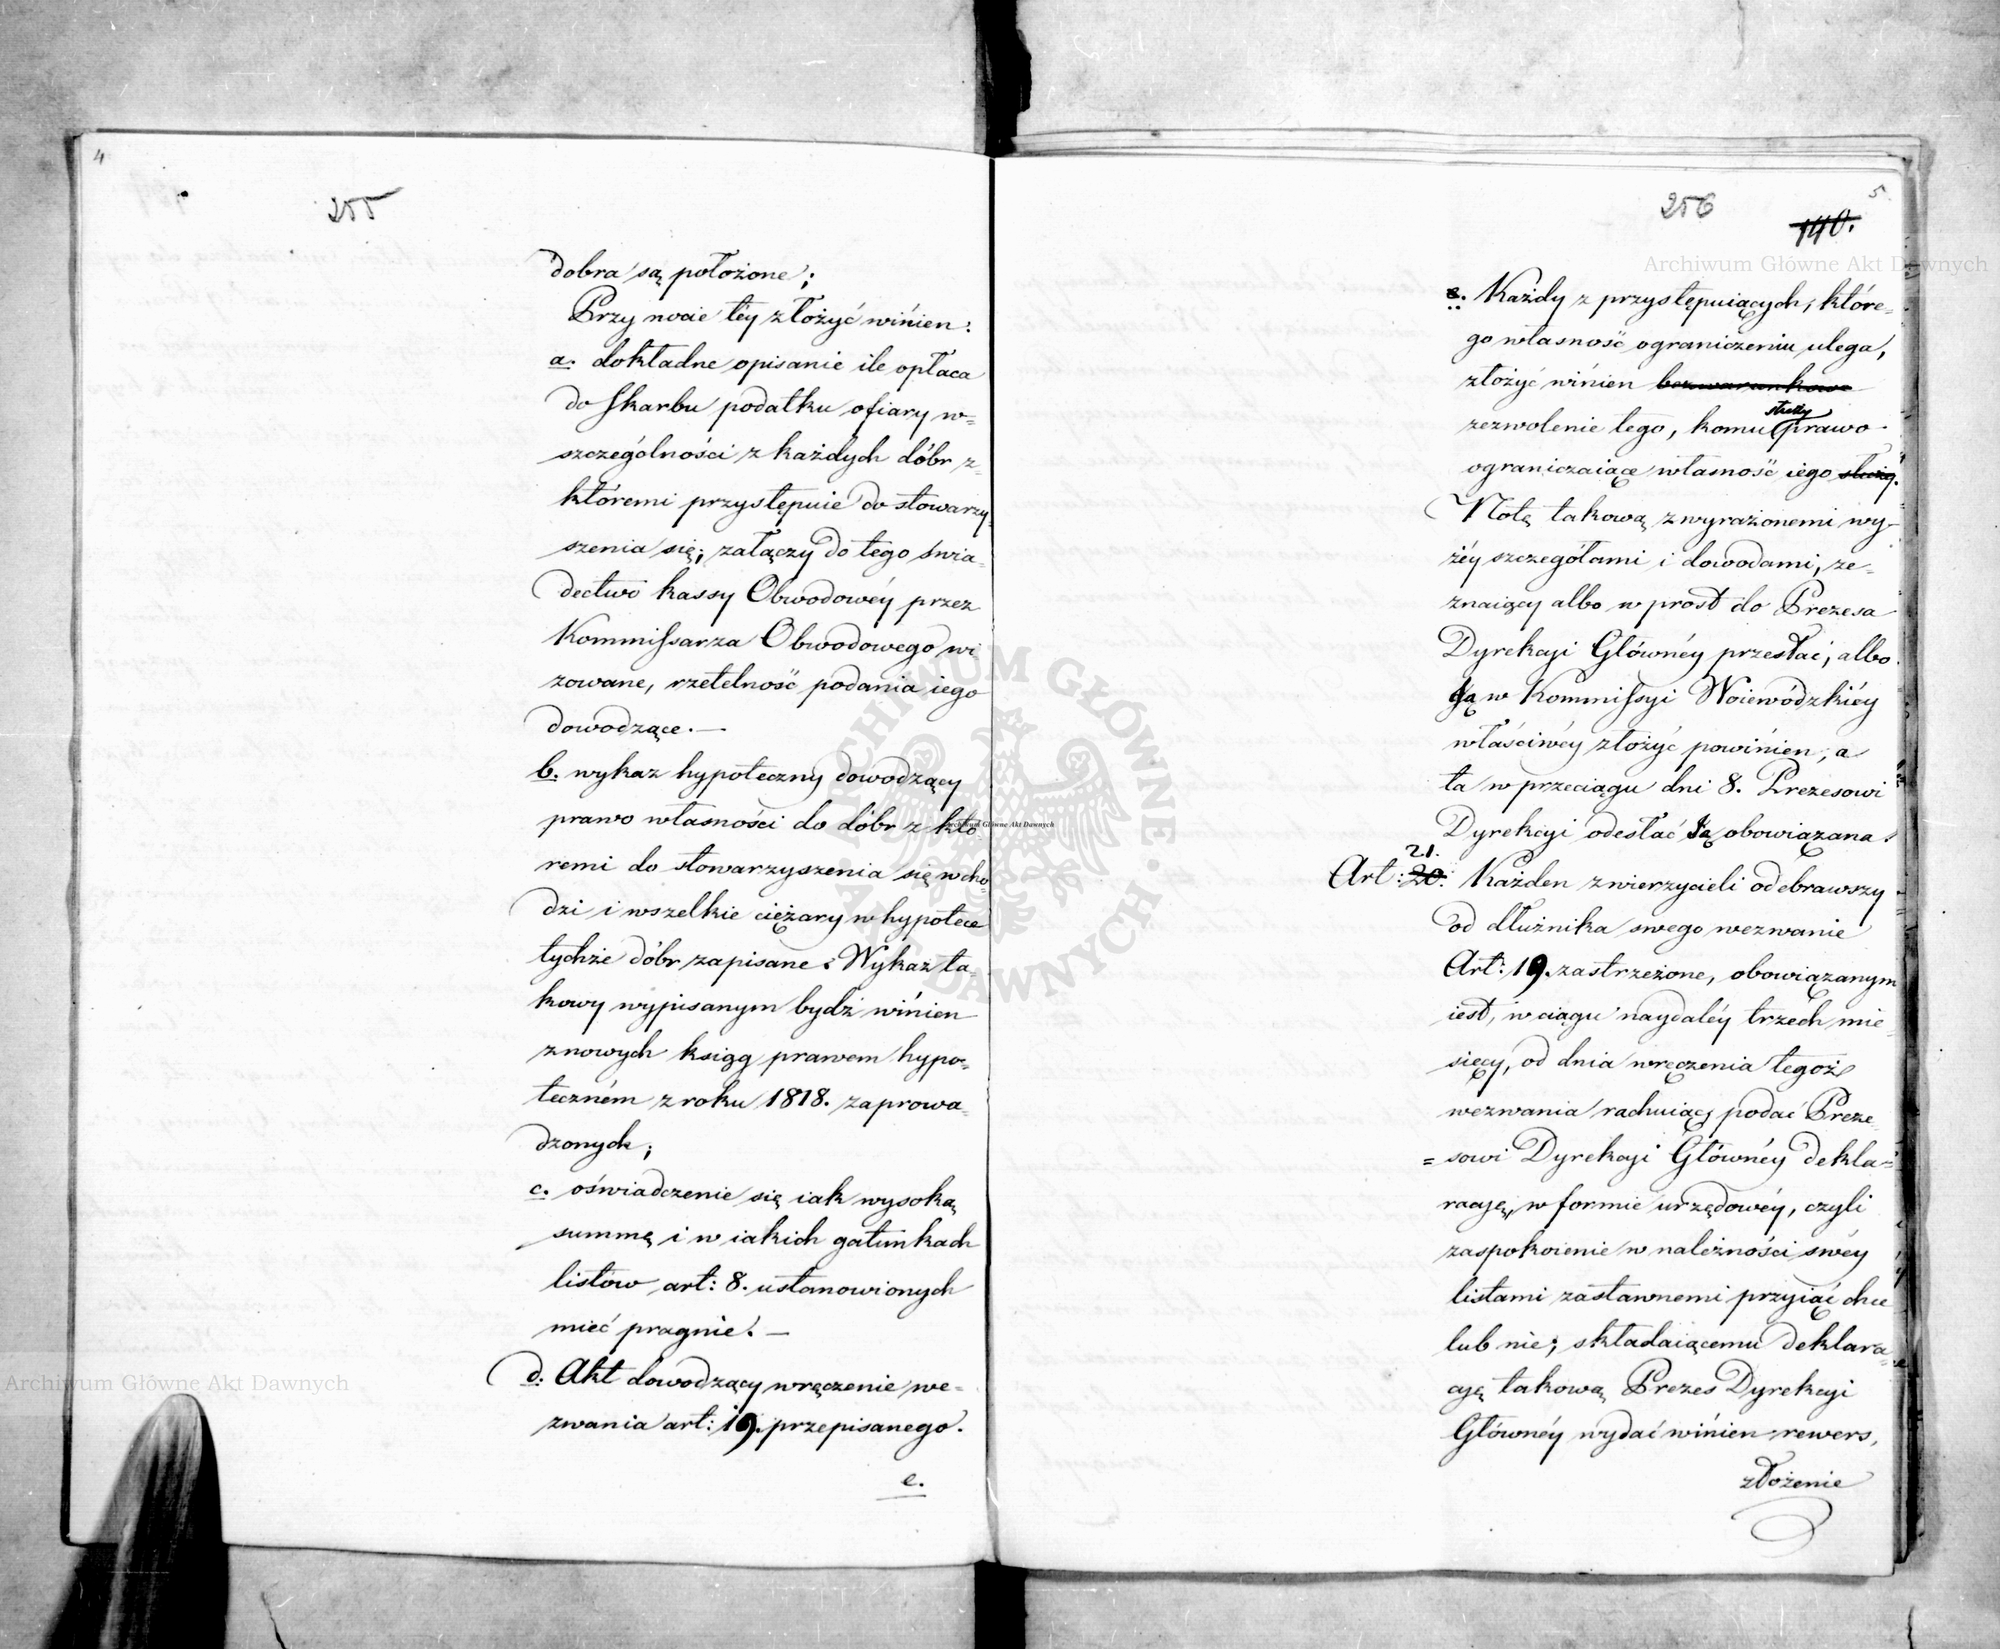 4
255
dobra są położone;
Przy nocie téy złożyć winien:
a. dokładne opisanie ile opłaca
do skarbu podatku ofiary w-
szczególności z każdych dóbr z-
któremi przystępuie do stowarzy-
szenia się; załączy do tego świa-
dectwo kassy Obwodowéy przez
Kommissarza Obwodowego wi-
zowane, rzetelność podania iego
dowodzące. —
b. wykaz hypoteczny dowodzący
prawo własności do dóbr z któ
remi do stowarzyszenia się wcho-
dzi i wszelkie ciężary w hypotece
tychże dóbr zapisane: Wykaz ta-
kowy wypisanym bydź winien
z nowych ksiąg prawem hypo-
teczném z roku 1818. zaprowa-
dzonych;
c. oświadczenie się iak wysoką
summę i w iakich gatunkach
listów art: 8. ustanowionych
mieć pragnie. —
d. Akt dowodzący wręczenie we-
zwania art: 19. przepisanego.
e.
5
256
140.
e. Każdy z przystępuiących, które-
go własność ograniczeniu ulega,
złożyć winien bezwarunkowe
zezwolenie tego, komu służy prawo
ograniczaiące własność iego służy.
Notę takową z wyrażonemi wy-
żéy szczegółami i dowodami, ze-
znaiący albo wprost do Prezesa
Dyrekcyi Głównéy przesłać, albo
ią w Kommissyi Woiewódzkiéy
właściwéy złożyć powinien, a
ta w przeciągu dni 8. Prezesowi
Dyrekcyi odesłać ią obowiązana.
21.
Art: 20. Każden z wierzycieli odebrawszy
od dłużnika swego wezwanie
Art: 19. zastrzeżone, obowiązanym
iest, w ciągu naydaléy trzech mie-
sięcy, od dnia wręczenia tegoż
wezwania rachuiąc, podać Preze-
= sowi Dyrekcyi Głównéy dekla-
racyę, w formie urzędowéy, czyli
zaspokoienie w należności swéy
listami zastawnemi przyiąć chce
lub nie; składaiącemu deklara-
cyę takową Prezes Dyrekcyi
Głównéy wydać winien rewers,
złożenie
Archiwum Główne Akt Dawnych
Archiwum Główne Akt Dawnych
Archiwum Główne Akt Dawnych
ARCHIWUM GŁÓWNE AKT DAWNYCH